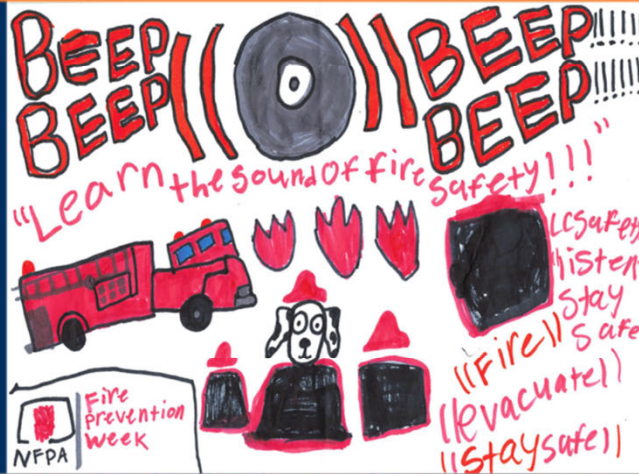 BEEP BEEP!!!!
BEEP BEEP!!!!!
"Learn the sound of fire safety!!!"
"safety
listen
Stay
Safe
"Fire"
"evacuate"
"Stay safe"
Fire
Prevention
Week
NFPA